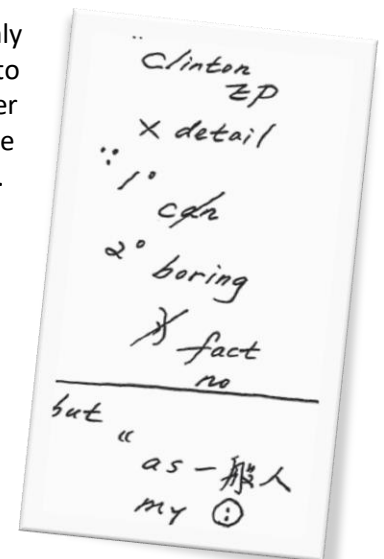 nly
to
er
e
.
Clinton
ZP
× detail
∵ 1°
can
2° boring
fact
no
but "
as 一般人
my